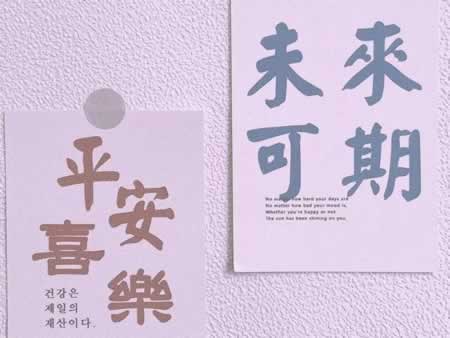 未來
可期
No matter how hard your days are
No matter how bad your mood is,
Whether you're happy or not
The sun has been shining on you.
平安
喜樂
건강은
제일의
재산이다.